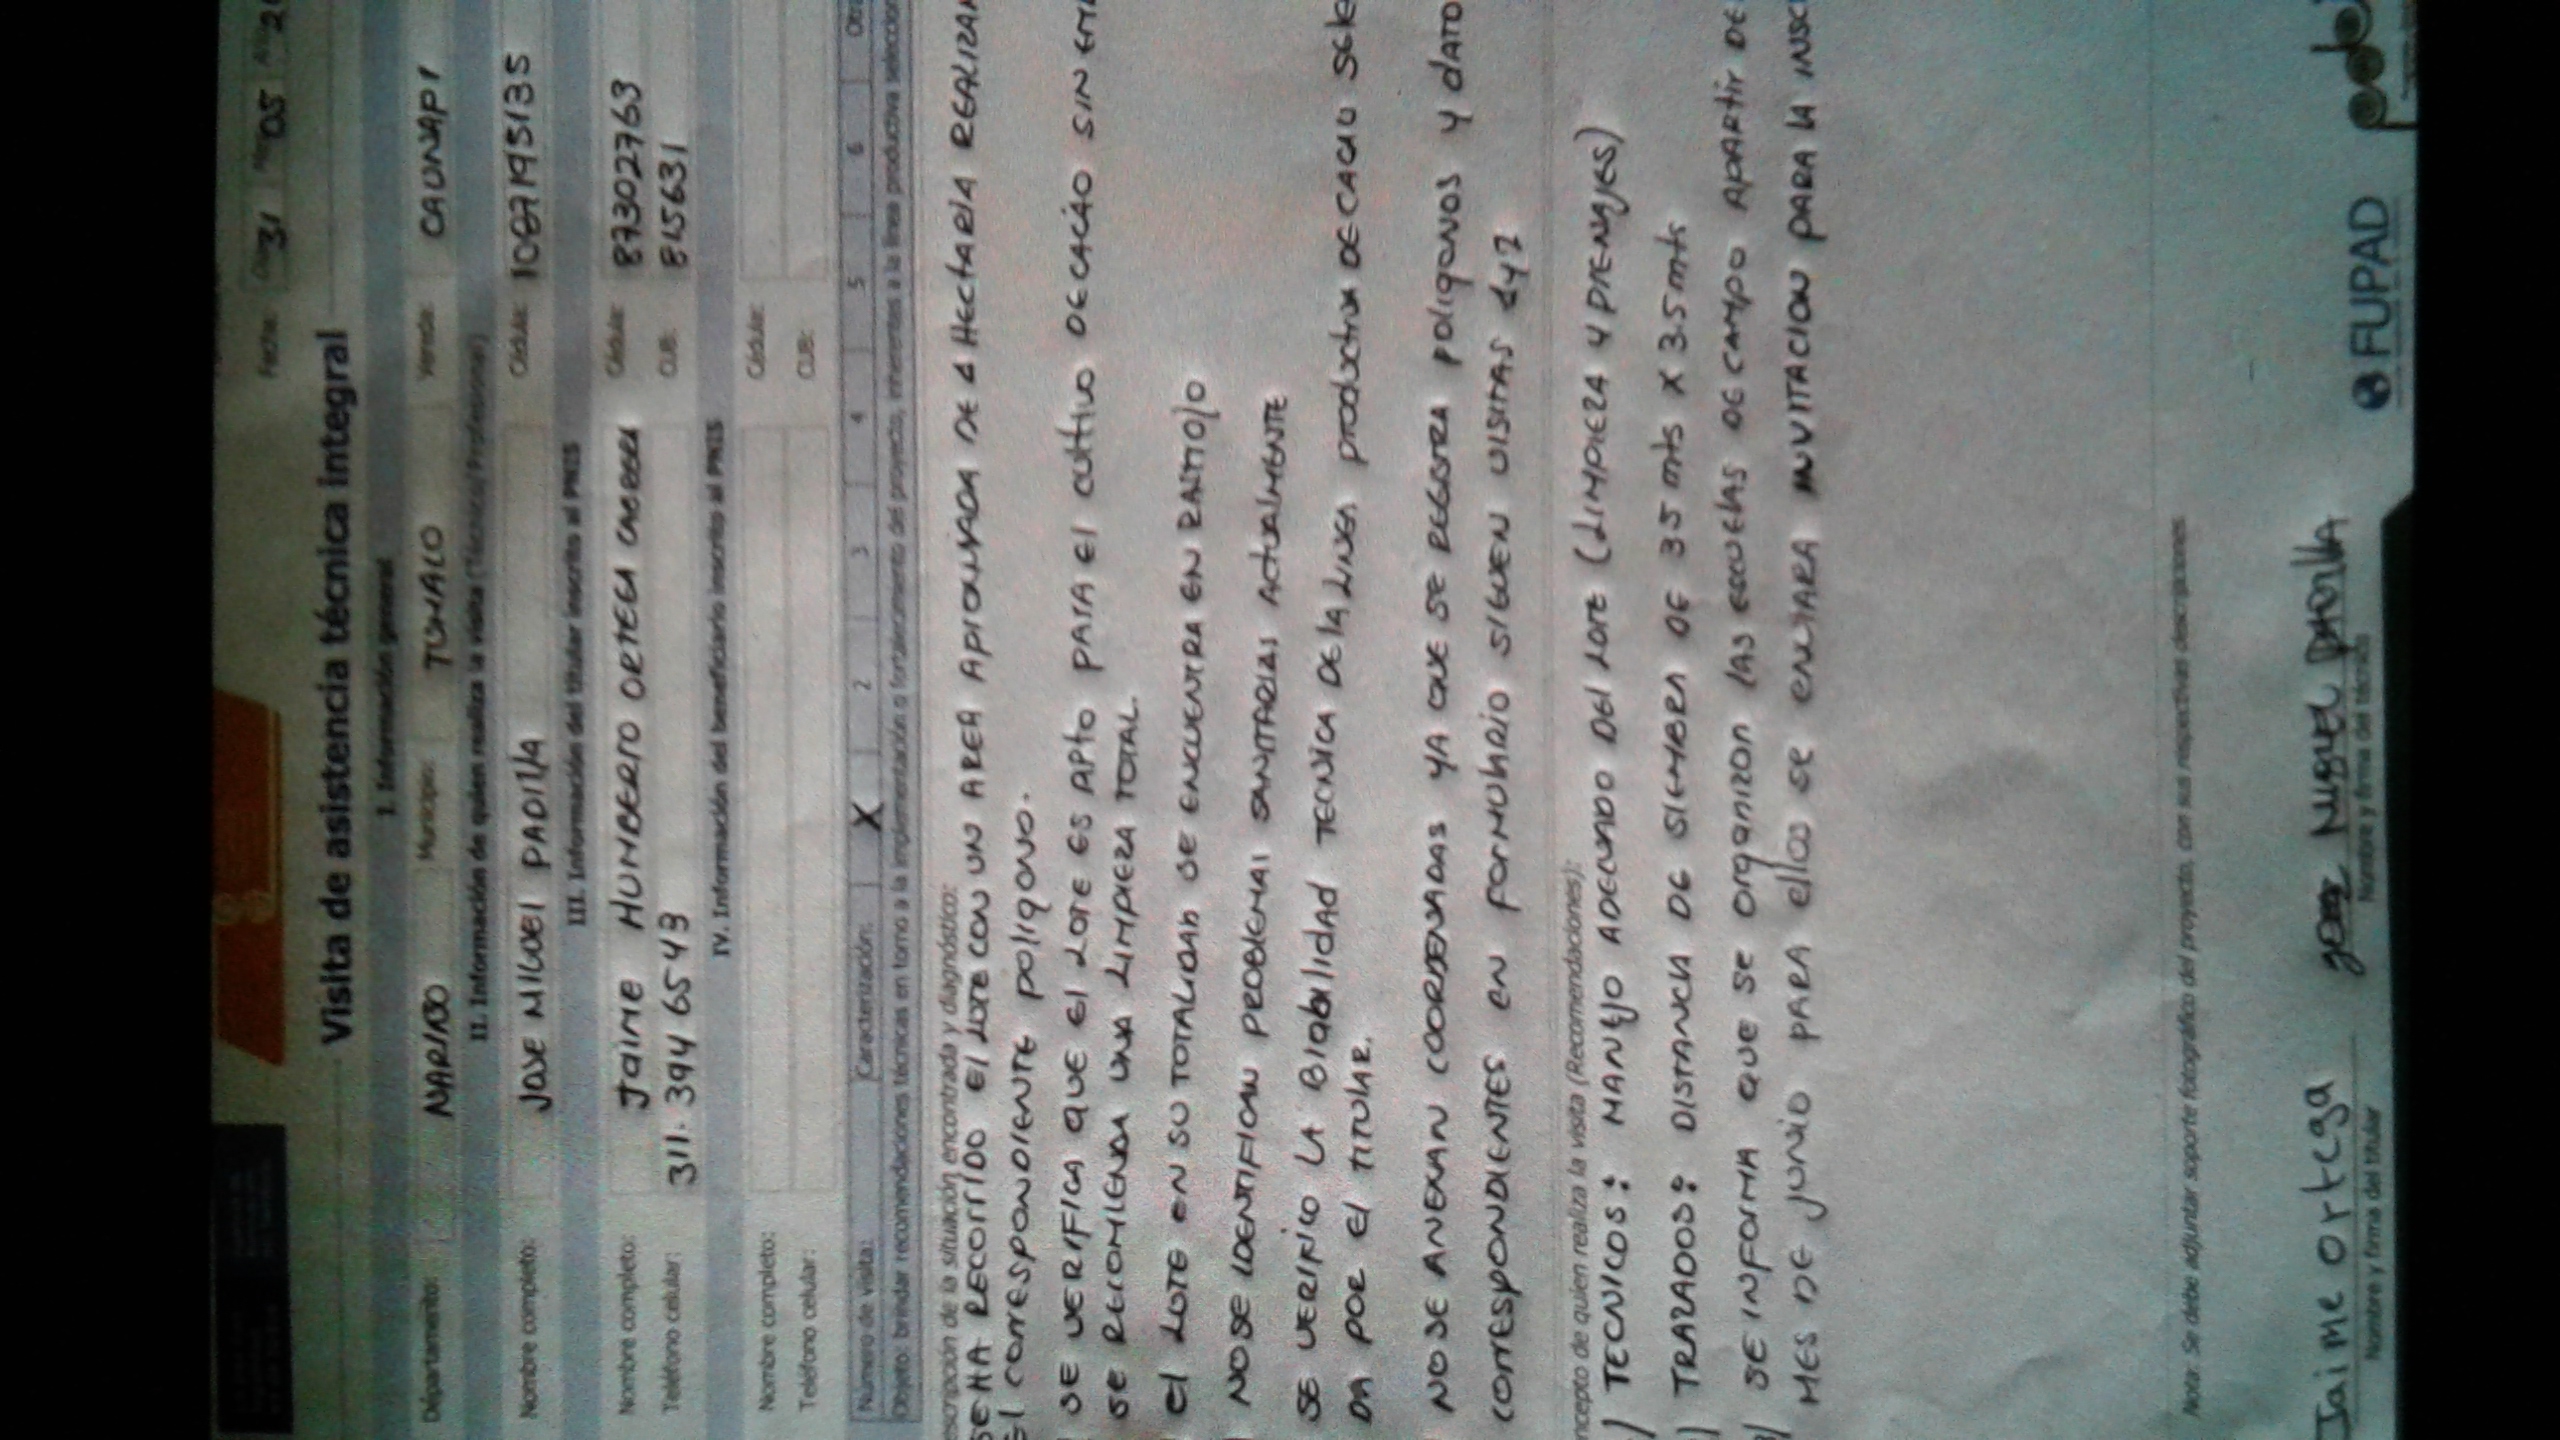 Fecha: Día 31 Mes 05 Año 20
Visita de asistencia técnica integral
I. Información general
Departamento: NARIÑO Municipio: TUMACO Vereda: CAUNAPI
II. Información de quien realiza la visita (Técnico/Profesional)
Nombre completo: JOSE MIGUEL PADILLA Cédula: 1087195135
III. Información del titular inscrito al PNIS
Nombre completo: Jaime HUMBERTO ORTEGA CABRERA Cédula: 87302763
Teléfono celular: 311.394 6543 CUB: 815631
IV. Información del beneficiario inscrito al PNIS
Nombre completo: Cédula:
Teléfono celular: CUB:
Número de visita: Caracterización: X 2 3 4 5 6 Otra
Objeto: brindar recomendaciones técnicas en torno a la implementación o fortalecimiento del proyecto, inherentes a la línea productiva seleccion
escripción de la situación encontrada y diagnóstico:
SE HA RECORRIDO El LOTE CON UN AREA APROXIMADA DE 1 HECTARIA REALIZAN
El CORRESPONDIENTE POLIGONO.
SE VERIFICA QUE El LOTE ES APTO PARA El CULTIVO DE CACAO SIN EM
SE RECOMIENDA UNA LIMPIEZA TOTAL.
El LOTE EN SU TOTALIDAD SE ENCUENTRA EN RASTROJO
NO SE IDENTIFICAN PROBLEMAS SANITARIAS ACTUALMENTE
SE VERIFICO LA BIABILIDAD TECNICA DE LA LINEA PRODUCTIVA DE CACAO SELE
DA POR El TITULAR.
NO SE ANEXAN COORDENADAS YA QUE SE REGISTRA POLIGONOS Y DATO
CORRESPONDIENTES EN FORMULARIO SIGUEN VISITAS 1 y 2
ncepto de quien realiza la visita (Recomendaciones):
) TECNICOS: MANEJO ADECUADO DEL LOTE (LIMPIEZA Y DRENAJES)
) TRAZADOS: DISTANCIA DE SIEMBRA DE 3.5 mts X 3.5 mts
) SE INFORMA QUE SE ORGANIZAN LAS ESCUELAS DE CAMPO APARTIR DE
MES DE JUNIO PARA ELLOS SE ENVIARA INVITACION PARA LA INSC
Nota: Se debe adjuntar soporte fotográfico del proyecto, con sus respectivas descripciones
Jaime Ortega JOSE MIGUEL PADILLA
Nombre y firma del titular Nombre y firma del técnico
FUPAD